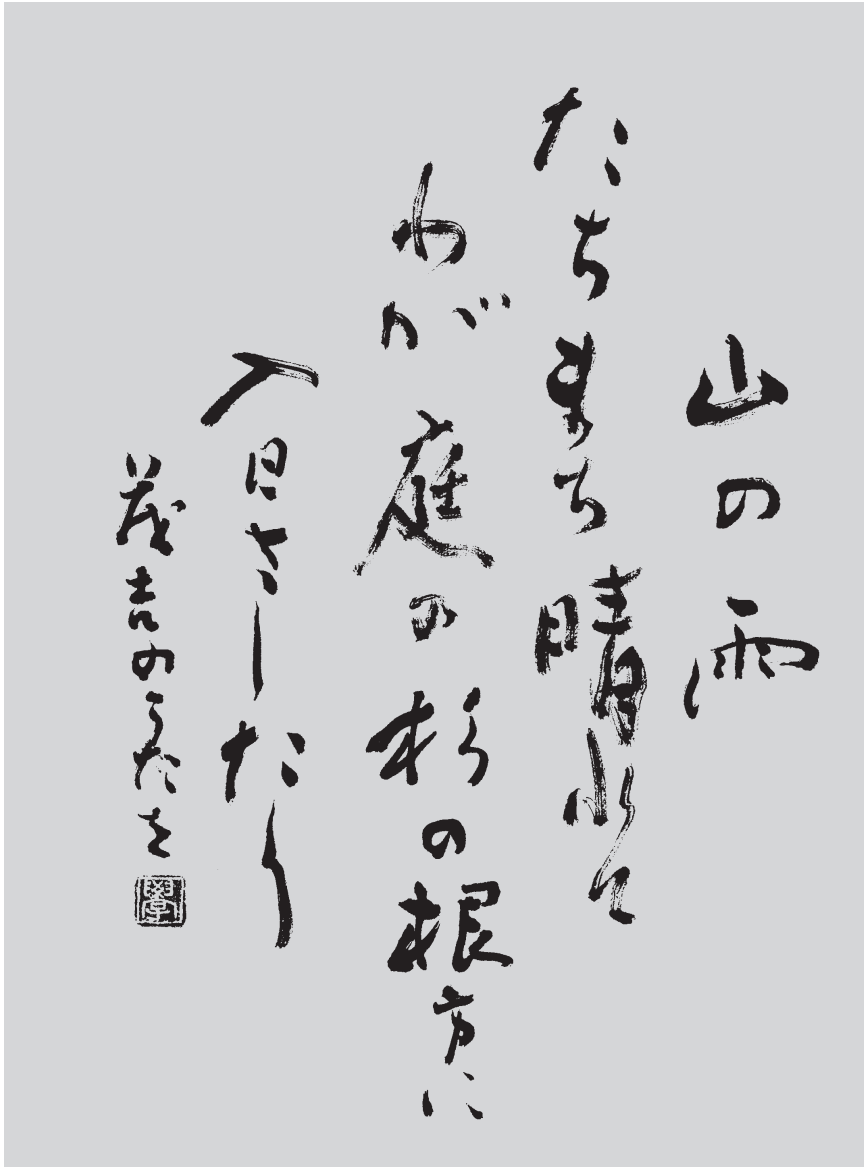 山の雨
たちまち晴れて
わが庭の杉の根方に
入日さしたり
茂吉のうたを